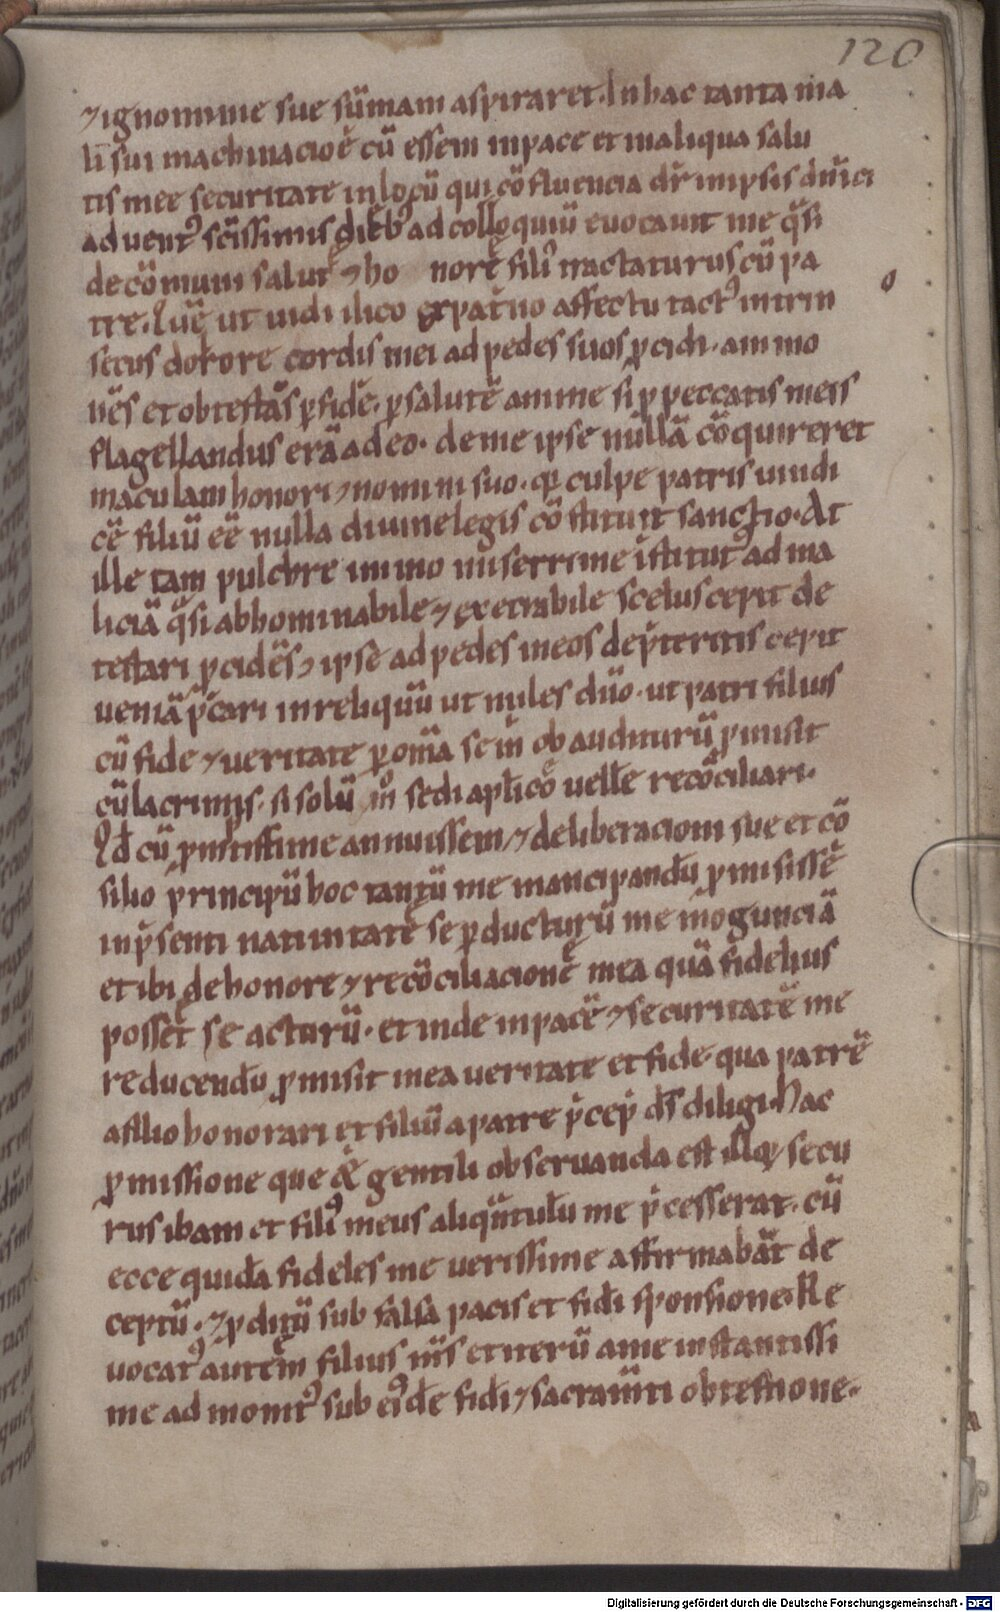 120
⁊ignominie sue sūmam aspiraret. In hac tanta ma
li sui machinacioē cū essem inpace et inaliqua salu
tis mee securitate inlocū qui cōfluencia dr̄ inipsis dn̄ici
aduent᾽ sc̄issimis dieb᾽ ad colloquiū euocauit me q̄si
decōmuni salute ⁊ ho nore filii tractaturus cū pa
tre. Quē ut uidi ilico expat̄no affectu tact᾽ intrin
secus dolore cordis mei ad pedes suos p̱cidi. ammo
nēs et obtestās p̱fidē. p̱salutē anime si p̱ peccatis meis
flagellandus erā adeo. de me ipse nullā cōquireret
maculam honori ⁊ nomini suo. q̱ culpe patris uindi
cē filiū eē nulla diuine legis cōstituit sanctio. At
ille tam pulchre immo miserrime īstitut᾽ ad ma
liciā q̄si abhominabile ⁊ execrabile scelus cepit de
testari p̱cidēs ⁊ ipse ad pedes meos dep̄teritis cepit
ueniā p̄cari inreliquū ut miles dn̄o. ut patri filius
cū fide ⁊ ueritate p̱ om̄a se m̄ obauditurū p̱misit
cū lacrimis. si solū m̊ sedi apl̄icē uelle recōciliari.
Qd̄ cū p̱mtissime annuissem ⁊ deliberacioni sue et cō
silio principū hoc tantū me mancipandū p̱misissē
inp̄senti natiuitate se p̱ducturū me moguncíā
et ibi de honore ⁊ recōciliacione mea quā fidelius
posset se acturū. et inde inpace ⁊ securitate me
reducendū p̱misit in ea ueritate et fide. qua patrē
afilio honorari et filiū apatre p̄cep̄ ds̄ diligi. Hac
p̱missione que & gentili obseruanda est illiq̱ secu
rus ibam et fili᾽ meus aliq̄ntulū me p̄cesserat. cū
ecce quidā fideles me uerissime affirmabāt de
ceptū. ⁊ p̱ditū sub falsa pacis et fidī sponsione. Re
uocat᾽ autem filius m̄s et iterū ame instantissi
me admonit᾽ sub ei᾽dē fidi ⁊ sacram̄ti obtestione.
Digitalisierung gefördert durch die Deutsche Forschungsgemeinschaft - DFG